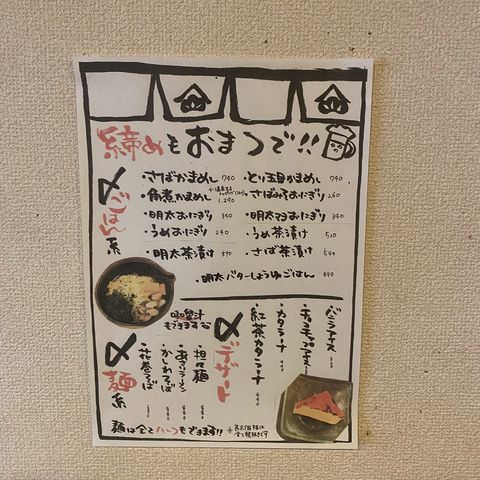 締めもおまつで!!
〆ごはん系
・さばかまめし 740
・とり五目かまめし 740
・角煮かまめし 1,290
・さばみそおにぎり 260
・明太おにぎり 340
・明太マヨおにぎり 340
・うめおにぎり 240
・うめ茶漬け 520
・明太茶漬け 590
・さば茶漬け 540
・明太バターしょうゆごはん 440
もできます
〆デザート
・バニラアイス
・カタラーナ
・紅茶カタラーナ
〆麺系
・担々麺
・あさりラーメン
・かしわそば
・花巻そば
麺は全てハーフもできます!!